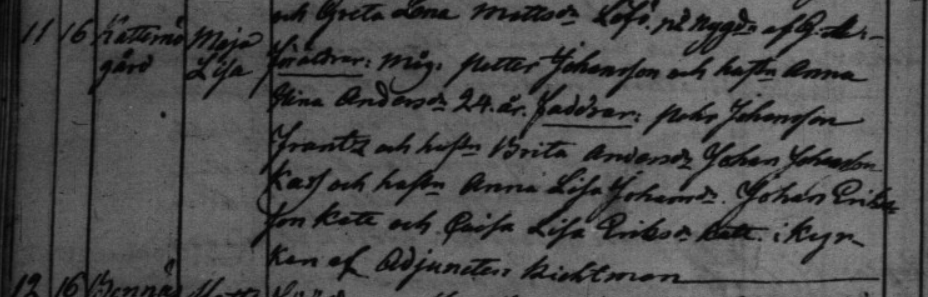 och Greta Lena Mattsdr
11 16 Maja
gård Lisa Föräldrar: måg: petter Johansson och hustr Anna
Stina Andersdr 24. år. faddrar: pehr Johansson
Frantz och hustr Brita Andersdr Johan Johansson
Kass och hustr Anna Lisa Johansdr. Johan Eriks-
son Katt och Caisa Lisa Eriksdr Katt. i Kyr-
kan af Adjuncten Richtman
12 16